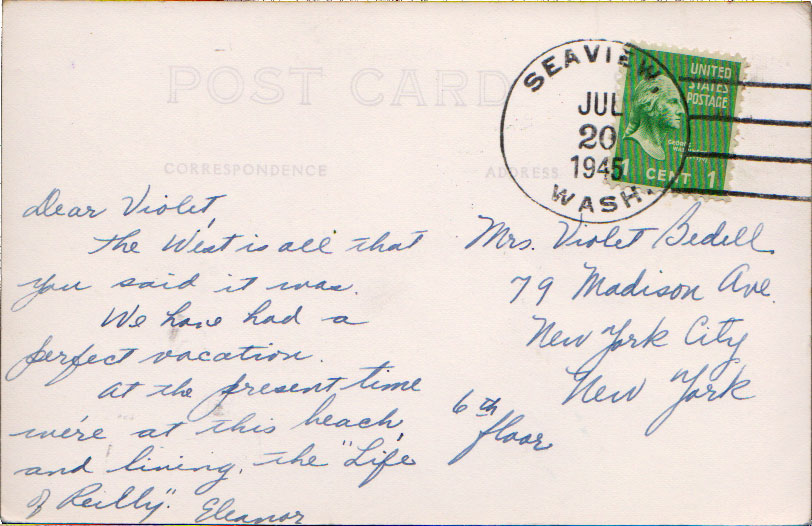 POST CARD
SEAVIEW,
JUL
20
1945
WASH.
UNITED
STATES
POSTAGE
1 CENT 1
CORRESPONDENCE
ADDRESS
Dear Violet,
The West is all that
you said it was.
We have had a
perfect vacation.
At the present time
we're at this beach,
and living, the "Life
of Reilly".
Eleanor
Mrs. Violet Bedell
79 Madison Ave.
New York City
New York
6th
floor